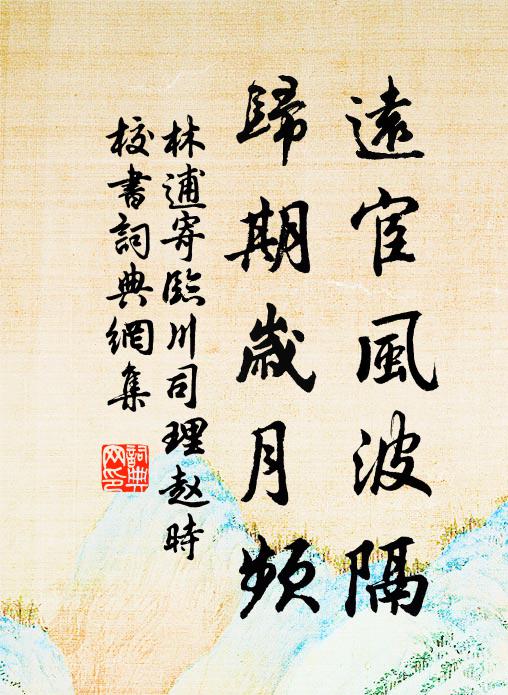 遠宦風波隔
歸期歲月頻
林逋寄臨川司理趙時
校書詞典網集
詞典
网